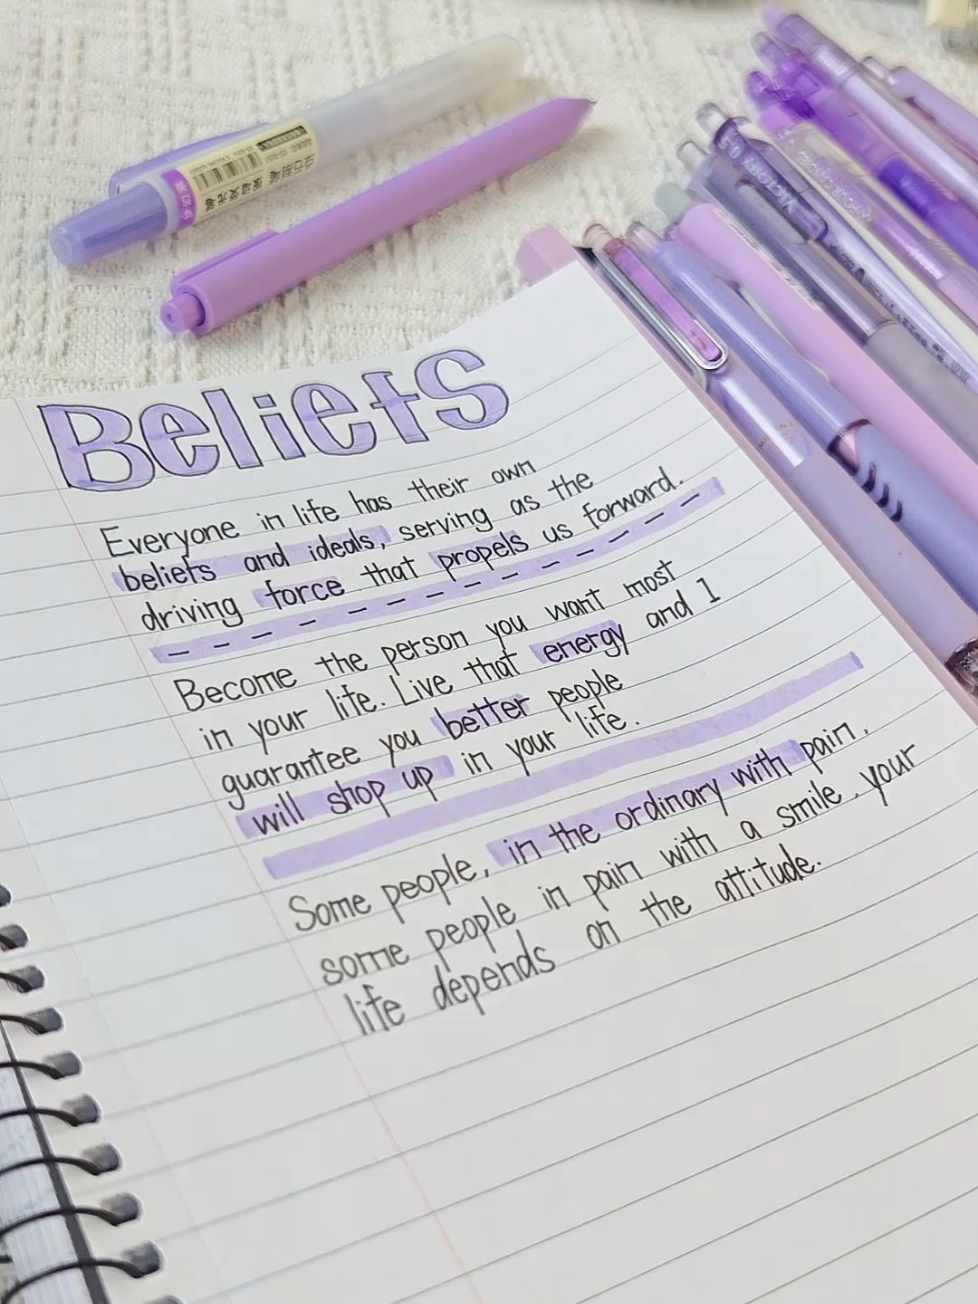 Beliefs
Everyone in life has their own
beliefs and ideals, serving as the
driving force that propels us forward.
Become the person you want most
in your life. Live that energy and I
guarantee you better people
will shop up in your life.
Some people, in the ordinary with pain,
some people in pain with a smile, your
life depends on the attitude.
Victory 0.5